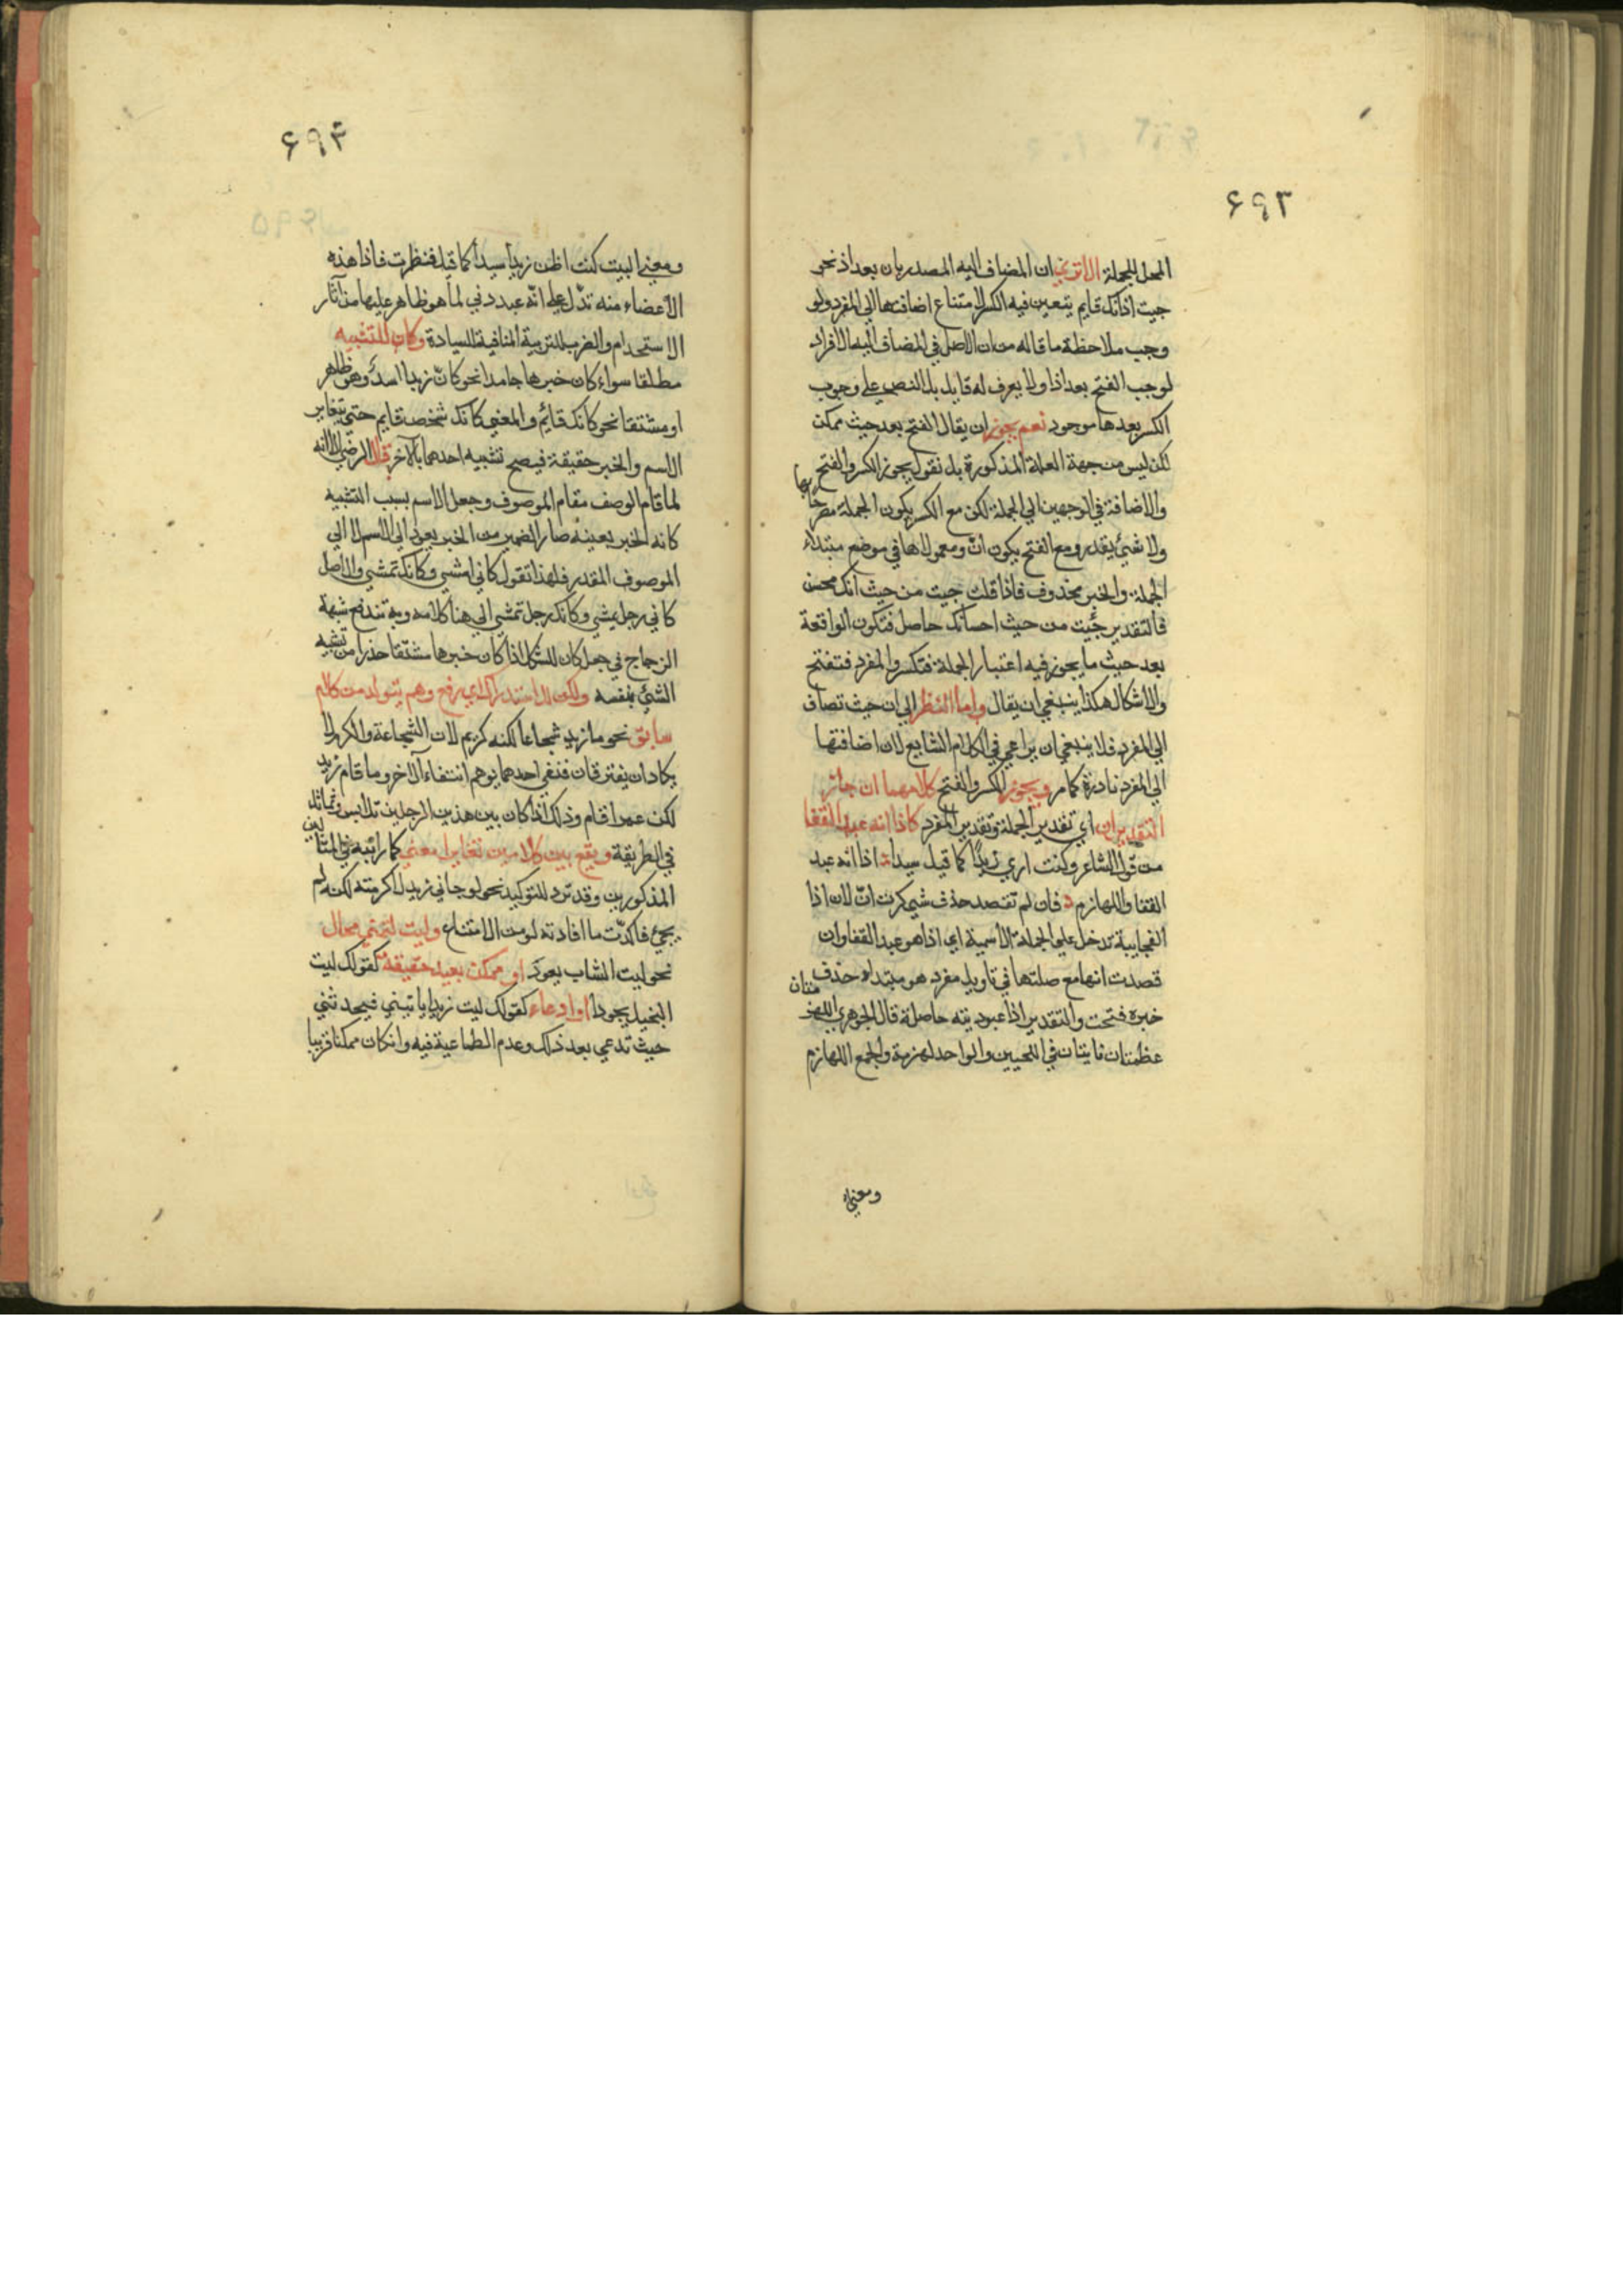 ۶۹۳
المحل للجملة الا تري ان المضاف اليه المصدر بان بعد اذ نحو
جيت اذ انك قايم يتعين فيه الكسر لامتناع اضافتها الي المفرد ولو
وجب ملاحظة ما قاله من ان الاصل في المضاف اليه الافراد
لوجب الفتح بعد اذا ولا يعرف له قايل بل النص علي وجوب
الكسر بعدها موجود نعم يجوز ان يقال الفتح بعد حيث ممكن
لكن ليس من جهة العلة المذكورة بل نقول يجوز الكسر والفتح
والاضافة في الوجهين الي الجملة لكن مع الكسر يكون الجملة مصرحا بها
ولا شيئ يقدر ومع الفتح يكون ان ومعمولاها في موضع مبتداء
الجملة والخبر محذوف فاذا قلت جيت من حيث انك محسن
فالتقدير جئيت من حيث احسانك حاصل فتكون الواقعة
بعد حيث ما يجوز فيه اعتبار الجملة فتكسر والمفرد فتفتح
والاشكال هكذا ينبغي ان يقال واما النظر الي ان حيث تضاف
الي المفرد فلا ينبغي ان يراعي في الكلام الشايع لان اضافتها
الي المفرد نادرة كما مر ويجوز الكسر والفتح كلاهما ان جاز
التقديران اي تقدير الجملة وتقدير المفرد كاذا انه عبد القفا
من قول الشاعر وكنت اري زيدًا كما قيل سيدا اذا انه عبد
القفا واللهازم فان لم تقصد حذف شي كسرت انّ لان اذا
الفجايية تدخل علي الجملة الاسمية اي اذا هو عبد القفا وان
قصدت انها مع صلتها في تاويل مفرد هو مبتداء حذف
خبره فتحت والتقدير اذا عبوديته حاصلة قال الجوهري اللهزمتان
عظمتان ناتيتان في اللحيين والواحد لهزمة والجمع اللهازم
ومعني
۶۹۴
ومعني البيت كنت اظن زيدا سيدا كما قيل فنظرت فاذا هذه
الاعضاء منه تدل علي انه عبد دني لما هو ظاهر عليها من آثار
الاستخدام والضرب للتربية المنافية للسيادة وكان للتشبيه
مطلقا سواء كان خبرها جامدا نحو كانّ زيدا اسدٌ وهو ظاهر
او مشتقا نحو كانك قائم والمعني كانك شخص قايم حتي يتغاير
الاسم والخبر حقيقة فيصح تشبيه احدهما بالآخر قال الرضي الا انه
لما قام الوصف مقام الموصوف وجعل الاسم بسبب التشبيه
كانه الخبر بعينه صار الضمير من الخبر يعود الي الاسم لا الي
الموصوف المقدر فلهذا تقول كاني امشي وكانك تمشي والاصل
كاني رجل يمشي وكانك رجل تمشي الي هنا كلامه وبه تندفع شبهة
الزجاج في جعل كان للشك اذا كان خبرها مشتقا حذرا من تشبيه
الشيئ بنفسه ولكن للاستدراك اي رفع وهم يتولد من كلام
سابق نحو ما زيد شجاعا لكنه كريم لان الشجاعة والكرم لا
يكادان يفترقان فنفي احدهما يوهم انتفاء الآخر وما قام زيد
لكن عمرا قام وذلك اذا كان بين هذين الرجلين تلابس وتماثل
في الطريقة ويقع بين كلامين تغايرا معني كما رايته في المثالين
المذكورين وقد ترد للتوكيد نحو لو جاني زيد لاكرمته لكنه لم
يجئ فاكدت ما افادته لو من الامتناع وليت لتمني محال
نحو ليت الشاب يعود او ممكن بعيد حقيقة كقولك ليت
البخيل يجود او ادعاء كقولك ليت زيدا ياتيني فيحدثني
حيث تدعي بعد ذلك وعدم الطماعية فيه وان كان ممكنا قريبا